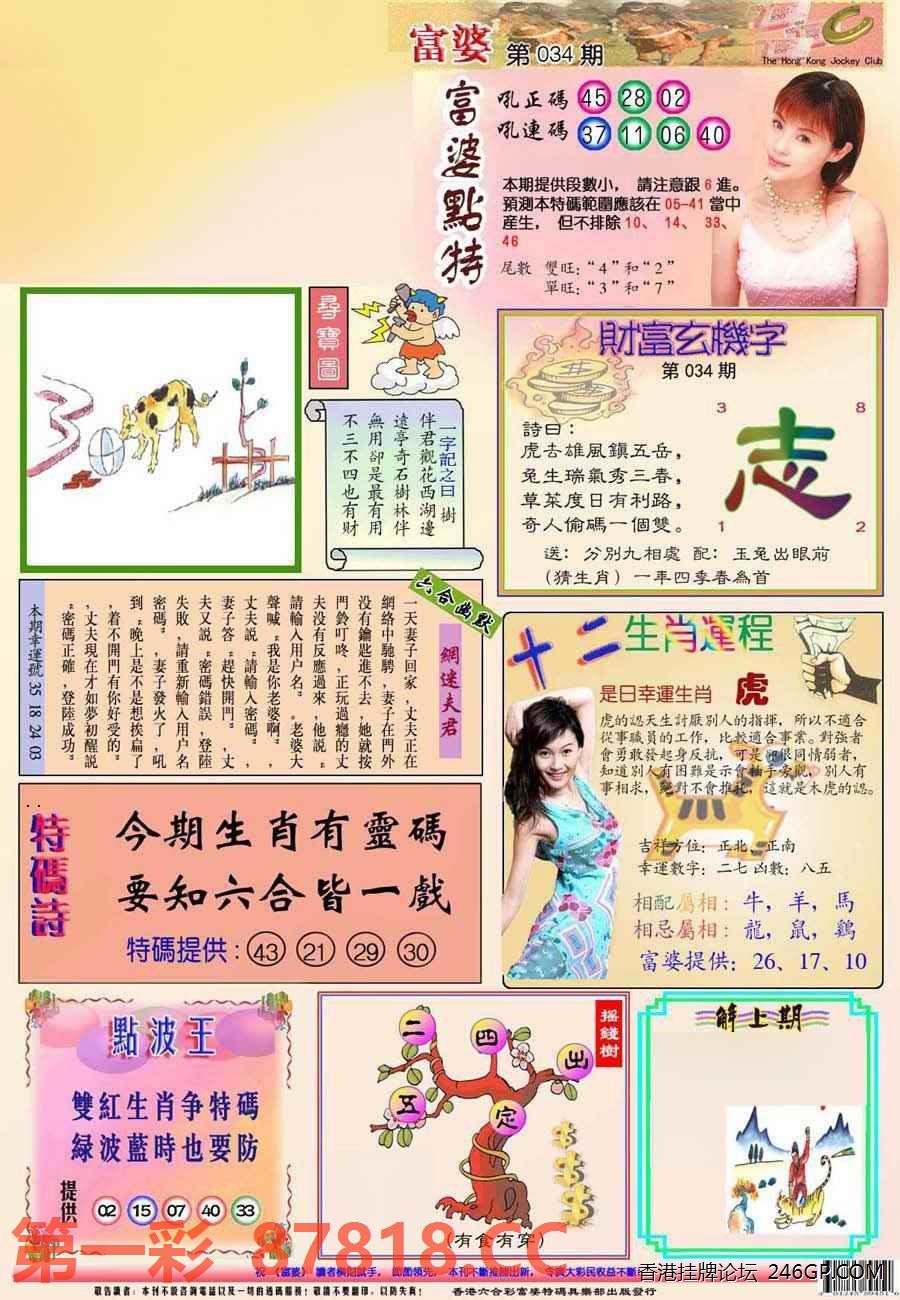 富婆 第 034 期
The Hong Kong Jockey Club
富婆點特
吼正碼 45 28 02
吼連碼 37 11 06 40
本期提供段數小， 請注意跟 6 進。
預測本特碼範圍應該在 05-41 當中
産生， 但不排除 10、 14、 33、
46
尾數 雙旺：“4”和“2”
單旺：“3”和“7”
尋寶圖
一字記之曰 樹
伴君觀花西湖邊
遠亭奇石樹林伴
無用卻是最有用
不三不四也有財
財富玄機字
第 034 期
詩曰：
虎去雄風鎮五岳，
兔生瑞氣秀三春，
草菜度日有利路，
奇人偷碼一個雙。
3 8
志
1 2
送： 分別九相處 配： 玉兔出眼前
（猜生肖） 一年四季春為首
六合幽默
網迷夫君
一天妻子回家，丈夫正在
網絡中馳騁，妻子在門外
没有鑰匙進不去，她就按
門鈴叮咚，正玩過癮的丈
夫没有反應過來，他説“
請輸入用户名”。老婆大
聲喊“我是你老婆啊”，
丈夫説“請輸入密碼”，
妻子答“趕快開門”，丈
夫又説“密碼錯誤，登陸
失敗，請重新輸入用户名
密碼”，妻子發火了，吼
到“晚上是不是想挨扁了
，着不開門有你好受的”
，丈夫現在才如夢初醒説
“密碼正確，登陸成功”
本期幸運號 35 18 24 03
十二生肖運程
是日幸運生肖 虎
虎的認天生討厭別人的指揮， 所以不適合
從事職員的工作， 比較適合事業。對強者
會勇敢發起身反抗， 可是卻很同情弱者，
知道別人有困難是示會袖手旁觀， 別人有
事相求， 絕對不會推托， 這就是木虎的認。
吉祥方位： 正北、正南
幸運數字： 二七 凶數： 八五
相配屬相： 牛， 羊， 馬
相忌屬相： 龍， 鼠， 鷄
富婆提供： 26、17、10
特碼詩
今期生肖有靈碼
要知六合皆一戲
特碼提供： 43 21 29 30
點波王
雙紅生肖争特碼
緑波藍時也要防
提供 02 15 07 40 33
摇錢樹
二 四 出
五 定
(有食有穿)
解上期
第一彩 87818.CC
祝 《富婆》 讀者橫財就手， 節節領先， 本刊不斷推陳出新， 令廣大彩民收益不斷
香港挂牌论坛 246GP.COM
敬告讀者：本刊不設咨詢電話以及一切的透碼服務！敬請不要翻印，以防失真！ 香港六合彩富婆特碼具樂部出版發行